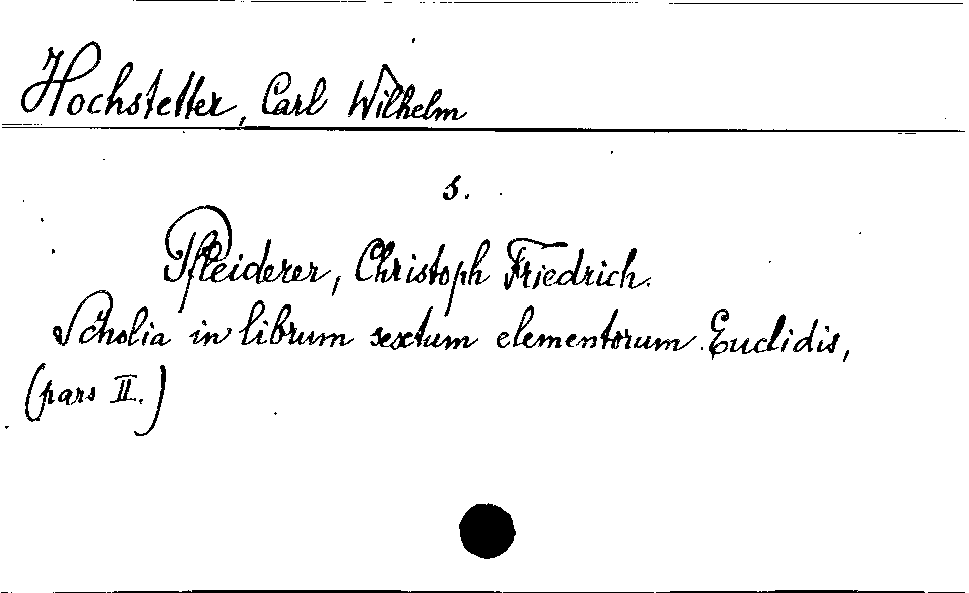 Hochstetter, Carl Wilhelm
s.
Pfleiderer, Christoph Friedrich.
Scholia in librum sextum elementorum Euclidis,
(pars II.)